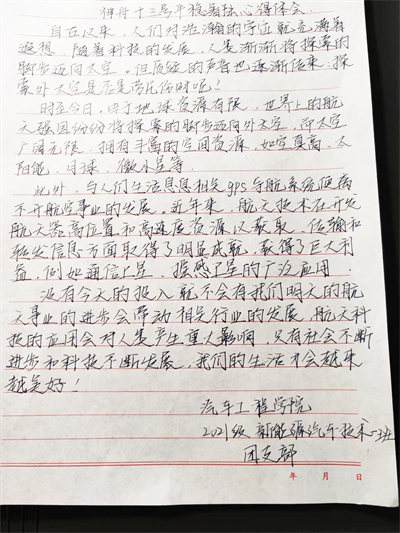 神舟十三号平稳着陆心得体会
自古以来，人们对浩瀚的宇宙就充满着
遐想，随着科技的发展，人类渐渐将探索的
脚步迈向太空。但质疑的声音也逐渐传来，探
索外太空是否是劳民伤财呢？
时至今日，由于地球资源有限，世界上的航
天强国纷纷将探索的脚步迈向外太空，而太空
广阔无限，拥有丰富的空间资源，如空真高、太
阳能、月球、微小星等
此外，与人们生活息息相关gps导航系统
不开航空事业的发展。近年来，航天技术在开发
航天器高位置和高速度资源以获取、传输和
转发信息方面取得了明显成就，获得了巨大利
益，例如通信卫星、摇感卫星的广泛应用
没有今天的投入就不会有我们明天的航
天事业的进步会带动相关行业的发展，航天科
技的应用会对人类产生重大影响，只有社会不断
进步和科技不断发展，我们的生活才会越来
越美好！
汽车工程学院
2021级新能源汽车技术一班
团支部
年 月 日